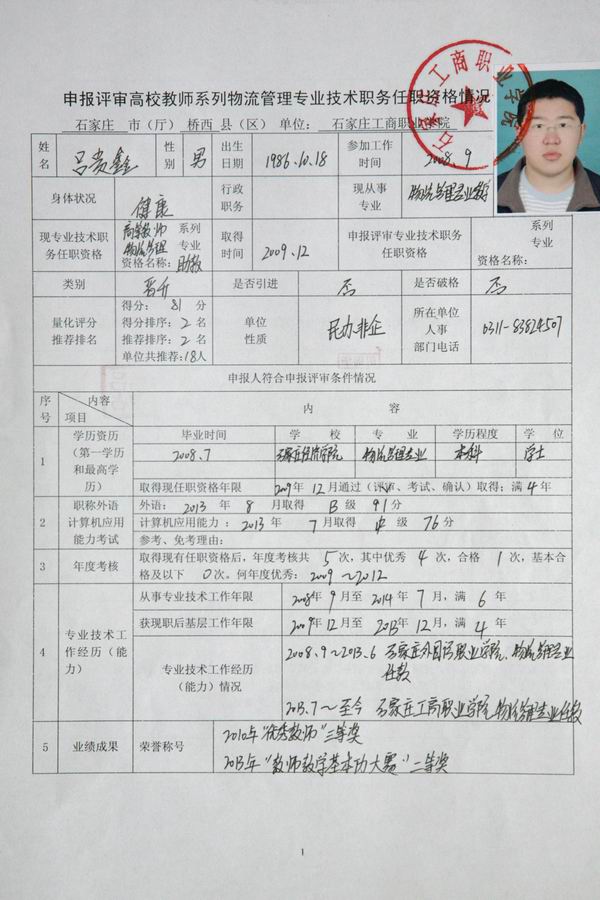 申报评审高校教师系列物流管理专业技术职务任职资格情况
石家庄 市(厅) 桥西 县(区) 单位: 石家庄工商职业学院
石家庄工商职业学院
姓名 吕贵鑫 性别 男 出生日期 1986.10.18 参加工作时间 2008.9
身体状况 健康 行政职务 现从事专业 物流管理专业教师
现专业技术职务任职资格 高等教师 系列 物流管理 专业 资格名称: 助教 取得时间 2009.12 申报评审专业技术职务任职资格 系列 专业 资格名称:
类别 晋升 是否引进 否 是否破格 否
量化评分推荐排名 得分: 81 分 单位性质 民办非企 所在单位人事部门电话 0311-83824507
得分排序: 2 名
推荐排序: 2 名
单位共推荐: 18人
申报人符合申报评审条件情况
序号 内容 项目 内 容
1 学历资历(第一学历和最高学历) 毕业时间 学 校 专 业 学历程度 学 位
2008.7 石家庄经济学院 物流管理专业 本科 学士
取得现任职资格年限 2009年 12月通过(评审、考试、确认)取得; 满 4年
2 职称外语计算机应用能力考试 外语: 2013 年 8 月取得 B 级 91分
计算机应用能力: 2013年 7月取得 中 级 76分
参考、免考理由:
3 年度考核 取得现有任职资格后, 年度考核共 5 次, 其中优秀 4 次, 合格 1 次, 基本合格及以下 0次。何年度优秀: 2009~2012
4 专业技术工作经历(能力) 从事专业技术工作年限 2008年 9月至 2014年 7月, 满 6 年
获现职后基层工作年限 2009年12月至 2013年12月, 满 4 年
专业技术工作经历(能力)情况 2008.9~2013.6 石家庄外国语职业学院, 物流管理专业任教
2013.7~至今 石家庄工商职业学院 物流管理专业任教
5 业绩成果 荣誉称号 2010年"优秀教师"三等奖
2013年"教师教学基本功大赛"二等奖
1